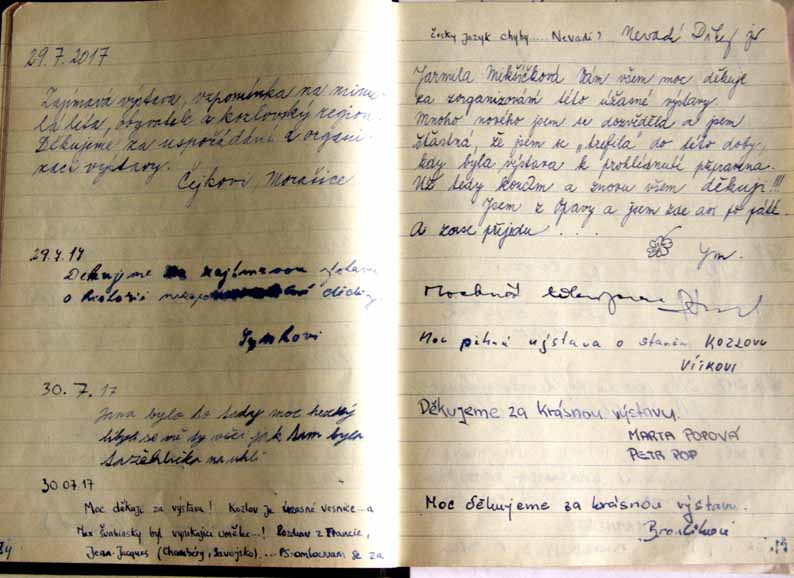 29.7.2017
Zajímavá výstava, vzpomínka na minu-
lá léta, obyvatele a kozlovský region.
Děkujeme za uspořádání a organi-
zaci výstavy.
Čejkovi, Morašice
29.7.17
Děkujeme za zajímavou
o historii
30.7.17
Jana bylo to tady moc hezký
líbyli se mě ty věci jak tam byla
30.07.17
Moc děkuji za výstavu! Kozlov je úžasné vesnice...a
Max Švabinský byl vynikající umělec...! Pozdrav z Francie,
Jean-Jacques (Chambéry, Savojsko)... PS: omlouvám se za
český jazyk chyby..... Nevadí? Nevadí
Jarmila Mikšíčková Vám všem moc děkuje
za zorganizování této úžasné výstavy.
Mnoho nového jsem se dozvěděla a jsem
šťastná, že jsem se „trefila" do této doby,
kdy byla výstava k prohlédnutí připravena.
Už tedy končím a znovu všem děkuji!!!
Jsem z Opavy a jsem zde asi po páté.
A zase přijedu . . . .
Moc pěkná výstava o starém Kozlovu
Vítkovi
Děkujeme za krásnou výstavu.
MARTA POPOVÁ
PETR POP
Moc děkujeme za krásnou výstavu.